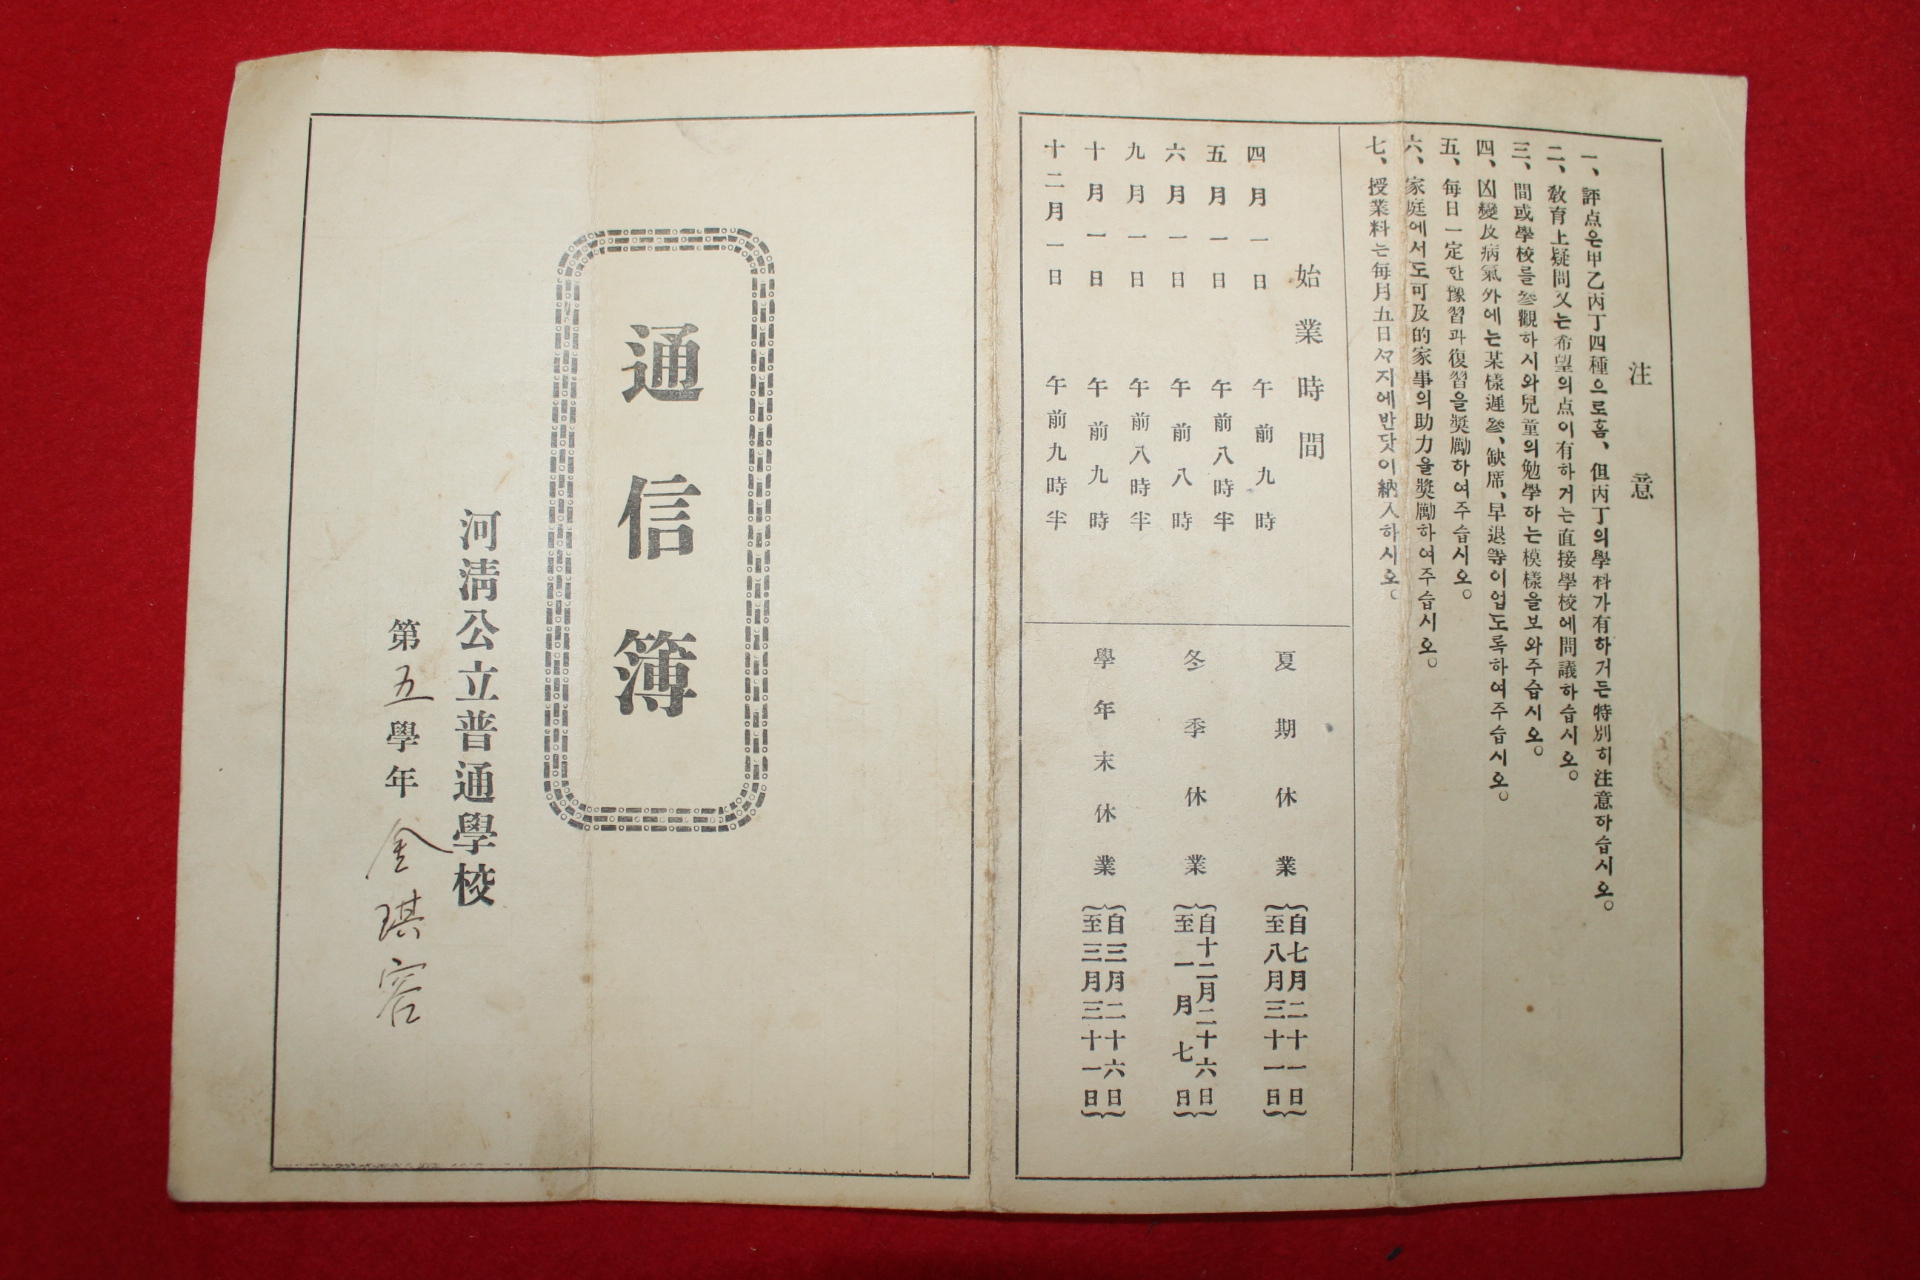 注意
一、評点은甲乙丙丁四種으로홈、但丙丁의學科가有하거든特別히注意하습시오。
二、敎育上疑問又는希望의点이有하거는直接學校에問議하습시오。
三、間或學校를參觀하시와兒童의勉學하는模樣을보와주습시오。
四、凶變及病氣外에는某樣遲參、缺席、早退等이업도록하여주습시오。
五、每日一定한豫習과復習을奬勵하여주습시오。
六、家庭에서도可及的家事의助力을奬勵하여주습시오。
七、授業料는每月五日싸지에반닷이納入하시오。
始業時間
四月一日 午前九時
五月一日 午前八時半
六月一日 午前八時
九月一日 午前八時半
十月一日 午前九時
十二月一日 午前九時半
夏期休業 自七月二十一日 至八月三十一日
冬季休業 自十二月二十六日 至一月七日
學年末休業 自三月二十六日 至三月三十一日
通信簿
河淸公立普通學校
第五學年 金琪容